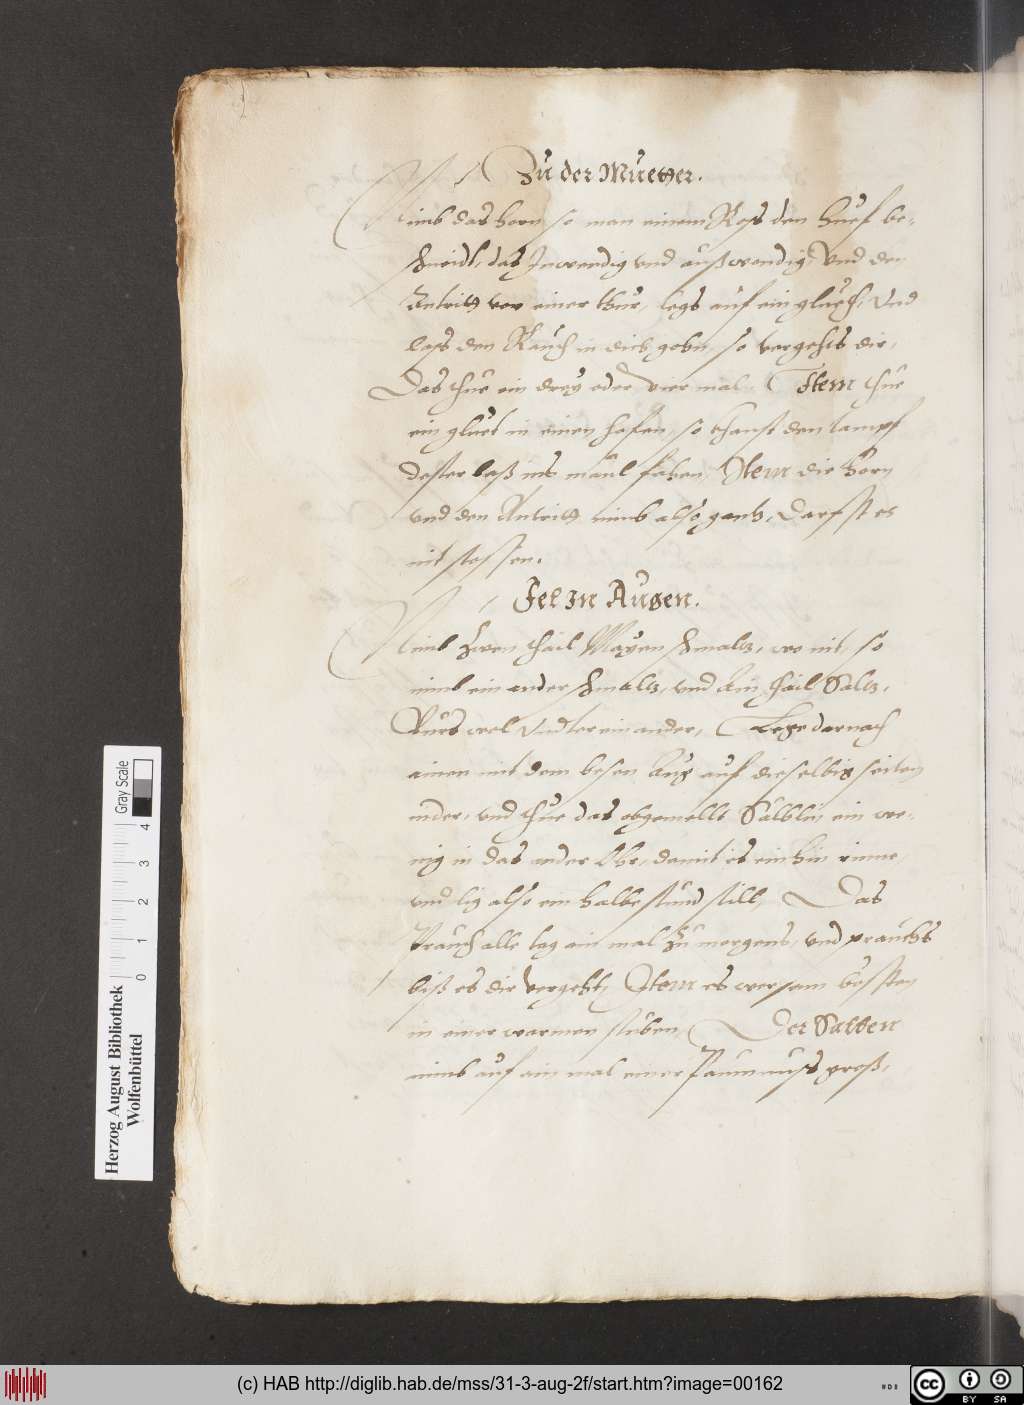 Zu der Muetter.
Nimb das horn so man einem Ross den huef be-
schneidt, das Inwendig vnd außwendig, Vnd den
Antritt vor einer thür, legs auf ein gluet, Vnd
lass den Rauch in dich gehn, so vergehts dir,
Das thue ein drey oder vier mal. Item thue
ein gluet in einen hafen, so khanst den dampf
dester baß ins maul fahen, Item die horn
vnd den Antritt nimb also gantz, darfst es
nit stossen.
Fel In Augen.
Nimb zwen thail Mayen schmaltz, wo nit, so
nimb ein ander schmaltz, vnd ain thail Saltz,
Rürs wol Vndter einander, Lege darnach
ainen mit dem bösen aug auf dieselbig seiten
nider, vnd thue das obgemellt Sälblin ein we-
nig in das ander Ohr, damit es ein hin rinne,
vnd lig also ein halbe stund still, Das
Prauch alle tag ein mal zu morgens, vnd prauchs
biß es dir vergeht, Item es wer am besten
in einer warmen stuben, Der Salben
nimb auf ain mal einer Paumnuss groß,
Herzog August Bibliothek
Wolfenbüttel
0 1 2 3 4
Gray Scale
(c) HAB http://diglib.hab.de/mss/31-3-aug-2f/start.htm?image=00162
cc BY SA